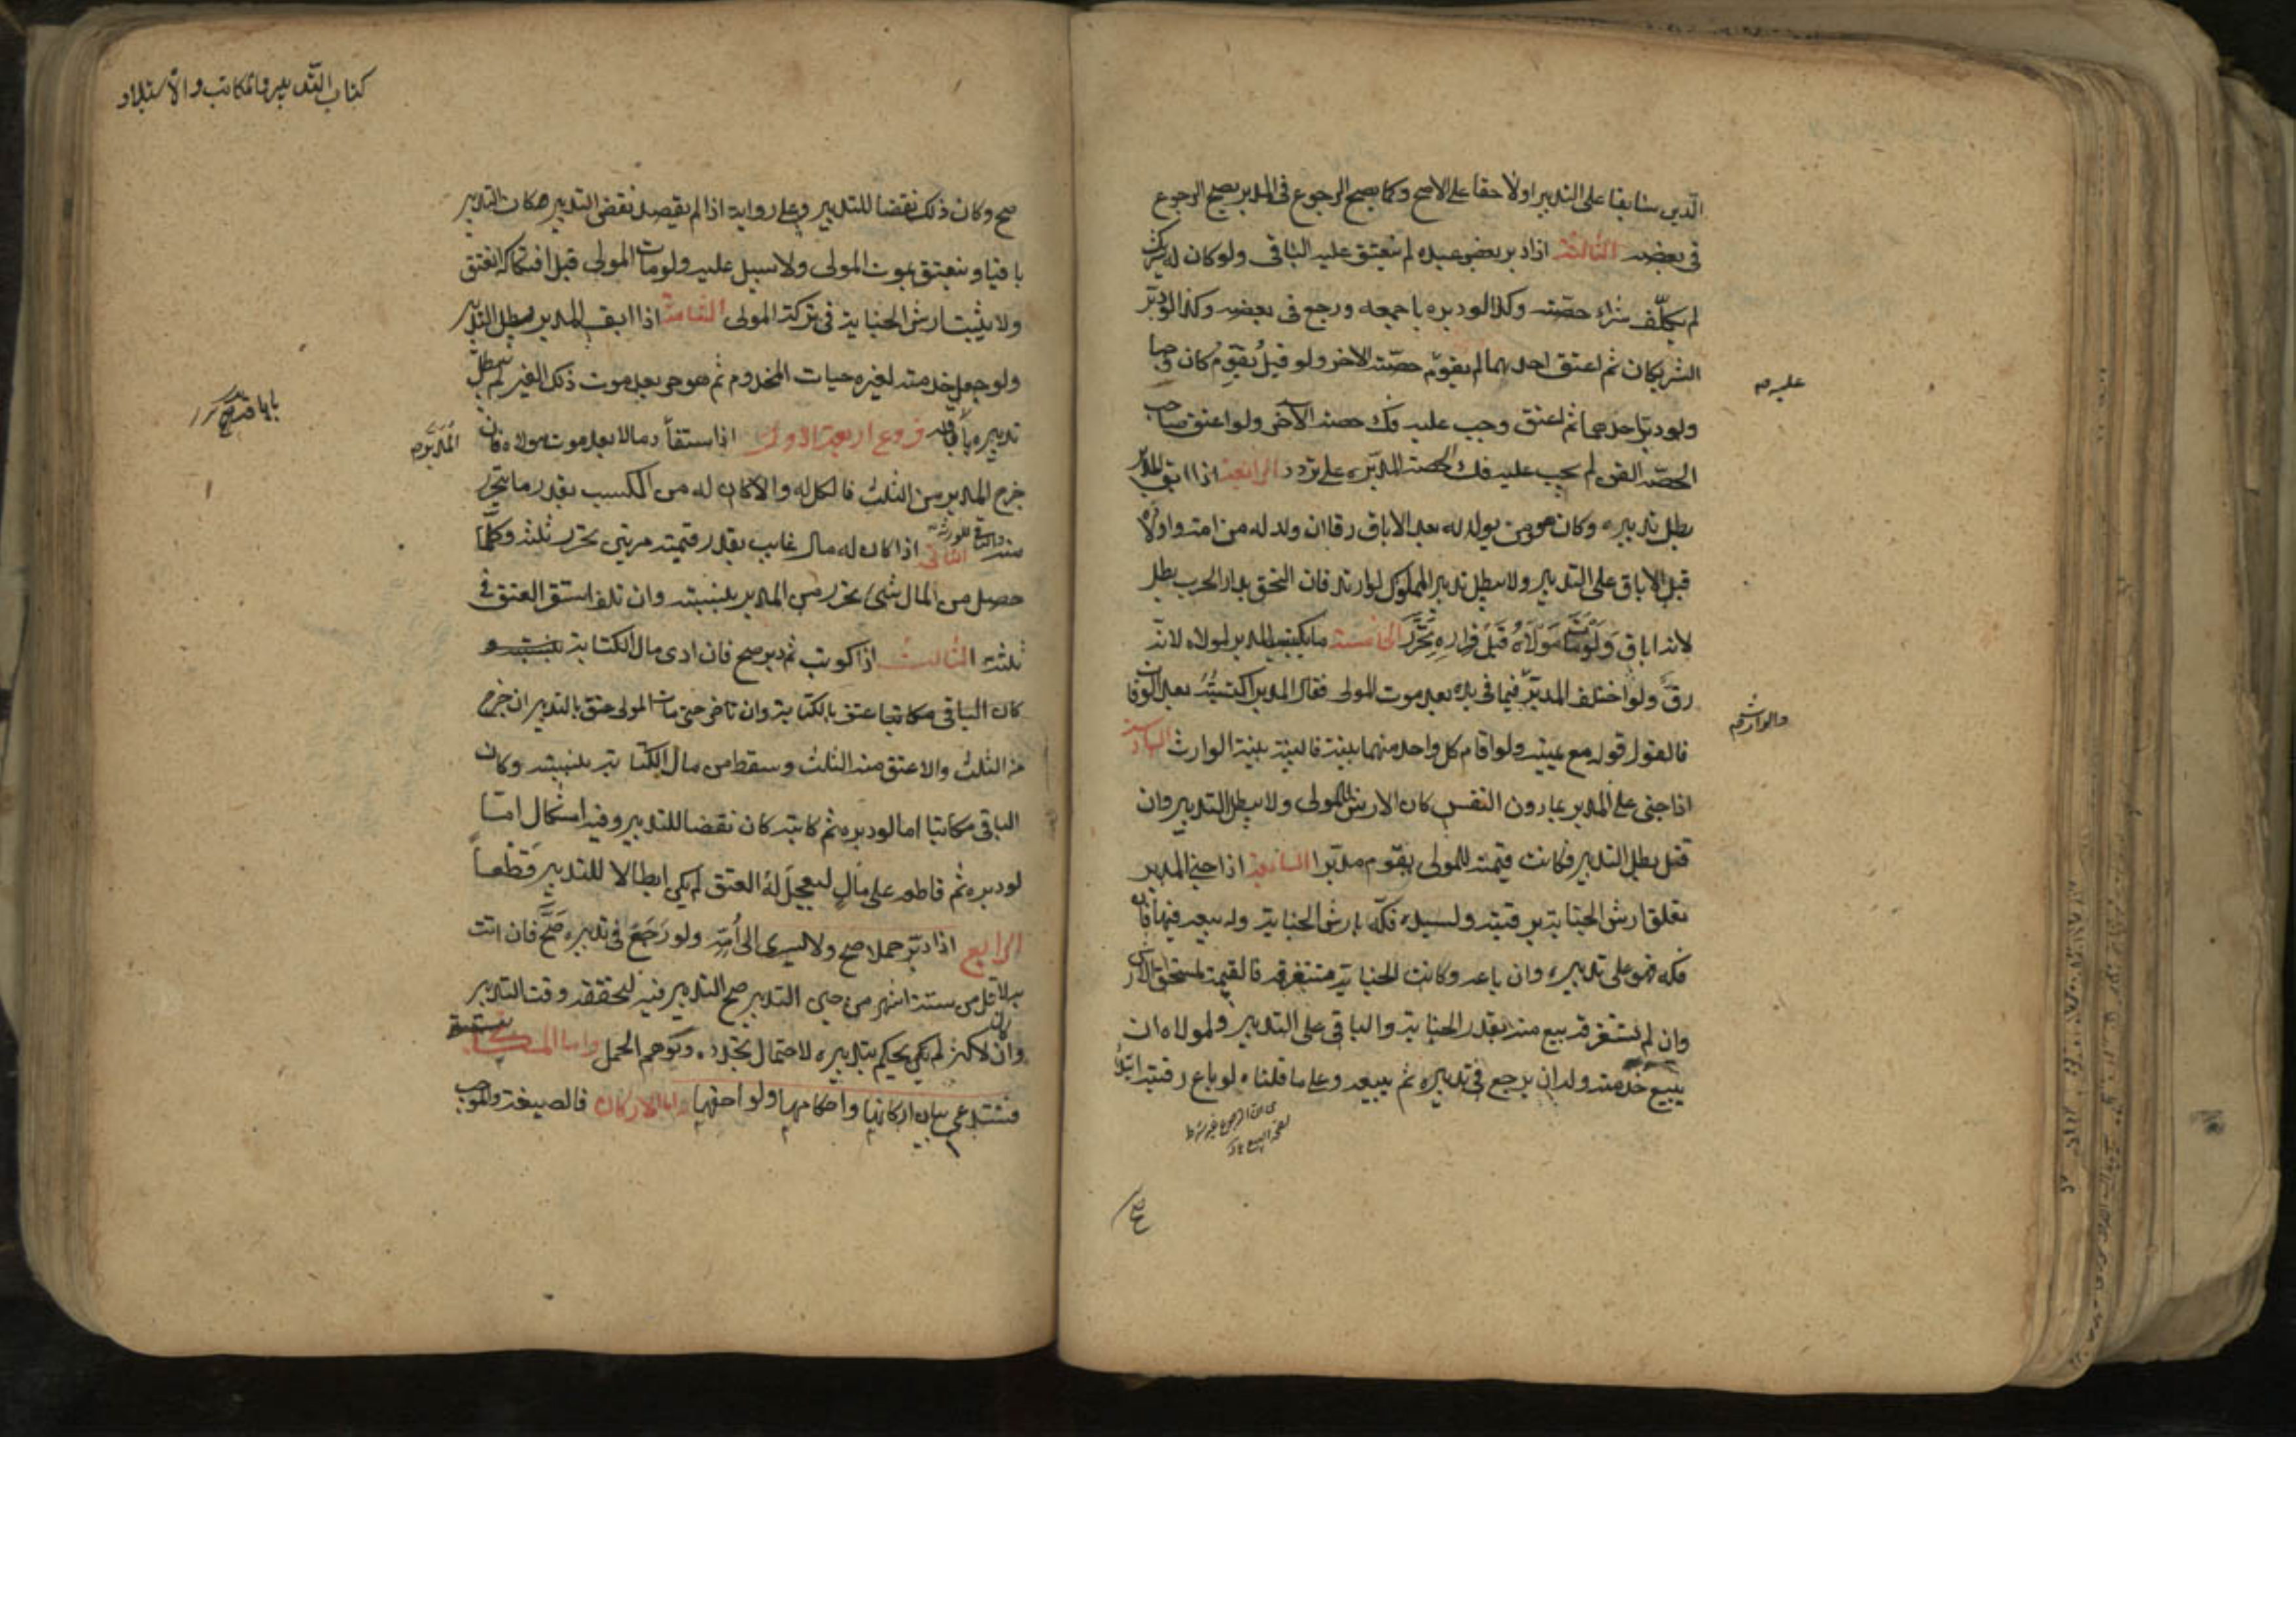 الدين سابقا على التدبير او لاحقا على الاصح وكما يصح الرجوع في المدبر يصح الرجوع
في بعضه الثالثة اذا دبر بعض عبده لم ينعتق عليه الباقي ولو كان له شريك
لم يكلف شراء حصته وكذا لو دبره باجمعه ورجع في بعضه وكذا لو دبر
الشريكان ثم اعتق احدهما لم يقوم حصته الاخر ولو قيل يقوم كان وجها
عليه
ولو دبر احدهما ثم اعتق وجب عليه فك حصته الآخر ولو اعتق صاحب
الحصة القن لم يجب عليه فك الحصة المدبرة على تردد الرابعة اذا ابق المدبر
بطل تدبيره وكان هو ومن يولد له بعد الاباق رقا ان ولد له من امته واولاده
قبل الاباق على التدبير ولا يبطل تدبير المملوك لو ارتد فان التحق بدار الحرب بطل
لانه اباق ولو مات مولاه قبل فراره تحرر الخامسة ما يكتسبه المدبر لمولاه لانه
رق ولو اختلف المدبر فيما في يده بعد موت المولى فقال المدبر اكتسبته بعد الوفات
والوارث
فالقول قوله مع يمينه ولو اقام كل واحد منهما بينة فالبينة بينة الوارث السادسة
اذا جنى على المدبر بما دون النفس كان الارش للمولى ولا يبطل التدبير وان
قتل بطل التدبير وكانت قيمته للمولى يقوم مدبرا السابعة اذا جنى المدبر
تعلق ارش الجناية برقبته ولسيده فكه بارش الجناية وله بيعه فيها فان
فكه فهو على تدبيره وان باعه وكانت الجناية مستغرقة فالقيمة لمستحق الارش
وان لم تستغرقه بيع منه بقدر الجناية والباقي على التدبير ولمولاه ان
يبيع خدمته وله ان يرجع في تدبيره ثم يبيعه وعلى ما قلناه لو باع رقبته ابتداء
كتاب التدبير والمكاتب والاستيلاد
صح وكان ذلك نقضا للتدبير وعلى رواية اذا لم يقصد نقض التدبير كان التدبير
باقيا وينعتق بموت المولى ولا سبيل عليه ولو مات المولى قبل افتكاكه انعتق
ولا يثبت ارش الجناية في تركة المولى الثامنة اذا ابق المدبر بطل التدبير
ولو جعل خدمته لغيره حيات المخدوم ثم هو حر بعد موت ذلك الغير لم يبطل
تدبيره باباقه فروع اربعة الاول اذا استفاد مالا بعد موت مولاه فان
المدبر
خرج المدبر من الثلث فالكل له والا كان له من المكسب بقدر ما تحرر
منه والباقي للورثة الثاني اذا كان له مال غايب بقدر قيمته مرتين تحرر ثلثه وكلما
حصل من المال شيء تحرر من المدبر بنسبته وان تلف استقر العتق في
ثلثه الثالث اذا كوتب ثم دبر صح فان ادى مال الكتابة
كان الباقي مكاتبا عتق بالكتابة وان تاخر حتى مات المولى عتق بالتدبير ان خرج
من الثلث والا عتق منه الثلث وسقط من مال الكتابة بنسبته وكان
الباقي مكاتبا اما لو دبره ثم كاتبه كان نقضا للتدبير وفيه اشكال اما
لو دبره ثم قاطعه على مال ليعجل له العتق لم يكن ابطالا للتدبير قطعا
الرابع اذا دبر حملا صح ولا يسري الى امه ولو رجع في تدبيره صح فان اتت
به لاقل من ستة اشهر من حين التدبير صح التدبير فيه لتحققه وقت التدبير
وان كان لاكثر لم يكن يحكم بتدبيره لاحتمال تجدده وتوهم الحمل واما المكاتبة
فتستدعي بيان اركانها واحكامها ولواحقها اما الاركان فالصيغة والموجب